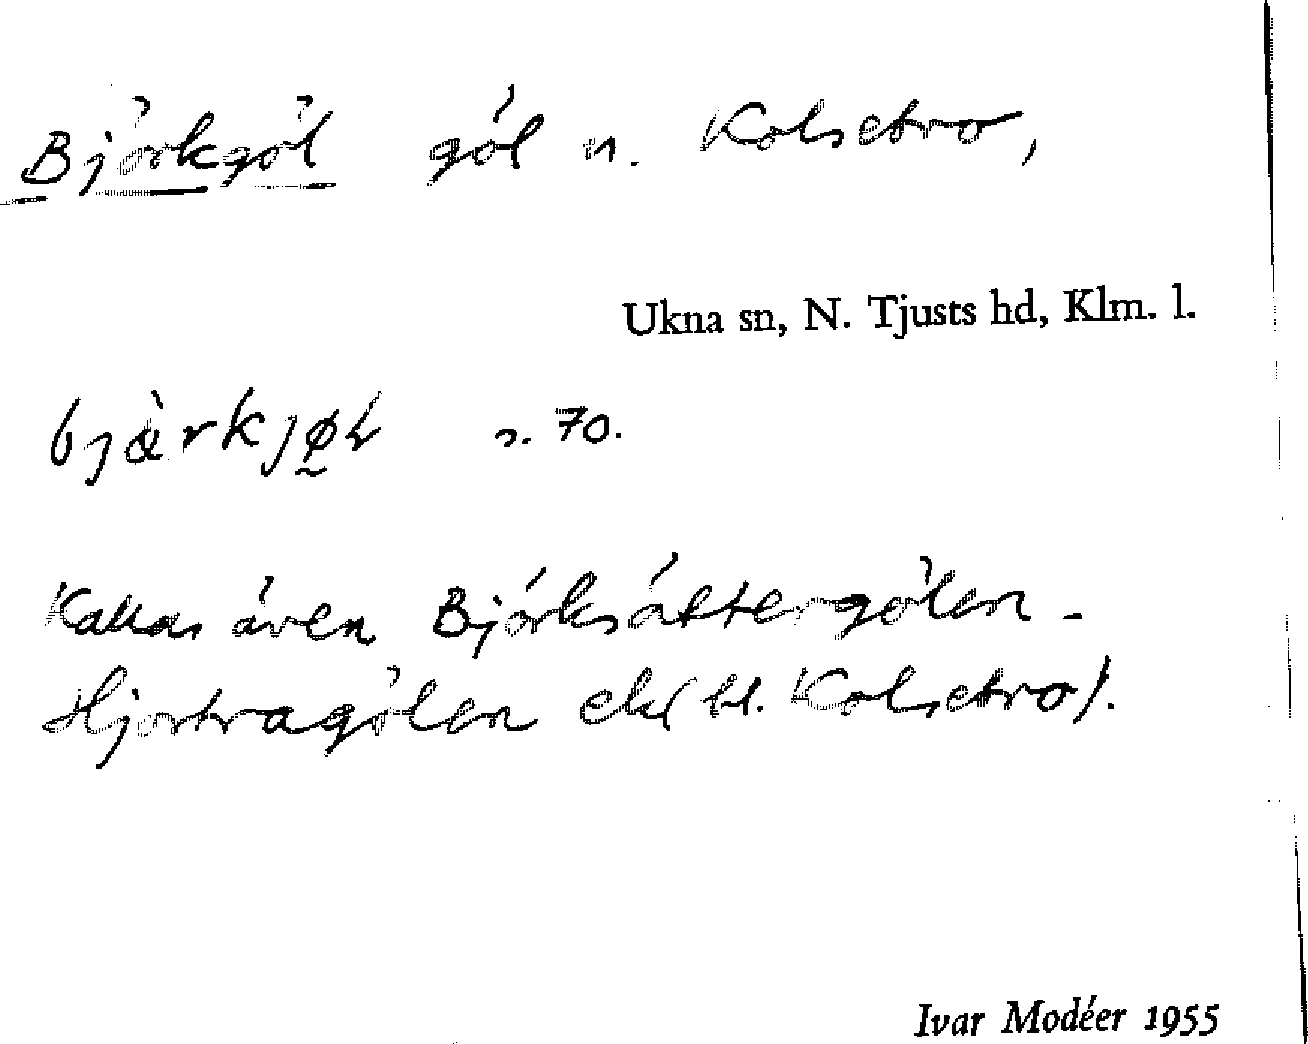 Björkgöl göl n. Kolsebro,
Ukna sn, N. Tjusts hd, Klm. l.
s. 70.
Kallas även Björksättergölen -
Hjortragölen ek( bl. Kolsebro).
Ivar Modéer 1955